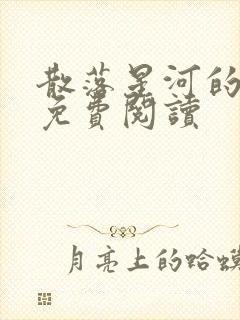 散落星河的
免費閱讀
月亮上的蛤蟆